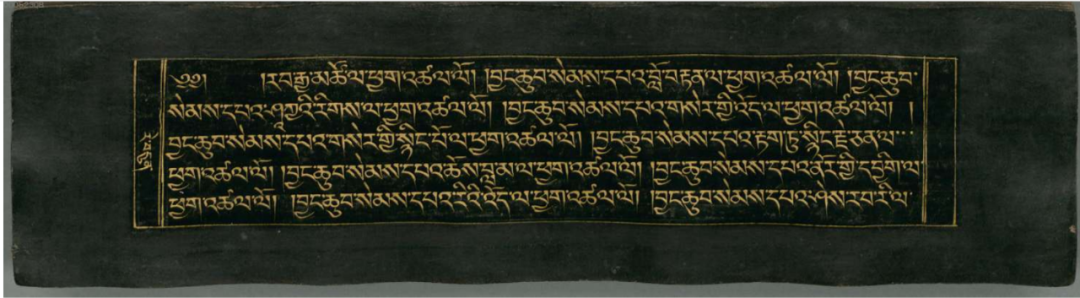 ༄༅། །རབ་རྒྱ་མཚོ་ལ་ཕྱག་འཚལ་ལོ། །བྱང་ཆུབ་སེམས་དཔའ་བློ་བརྟན་ལ་ཕྱག་འཚལ་ལོ། །བྱང་ཆུབ་
སེམས་དཔའ་ཤཱཀྱའི་རིགས་ལ་ཕྱག་འཚལ་ལོ། །བྱང་ཆུབ་སེམས་དཔའ་གསེར་གྱི་འོད་ལ་ཕྱག་འཚལ་ལོ། །
བྱང་ཆུབ་སེམས་དཔའ་གསེར་གྱི་སྙིང་པོ་ལ་ཕྱག་འཚལ་ལོ། །བྱང་ཆུབ་སེམས་དཔའ་རྟག་ཏུ་སྙིང་རྗེ་ཅན་ལ་
ཕྱག་འཚལ་ལོ། །བྱང་ཆུབ་སེམས་དཔའ་ཆོས་བླ་མ་ལ་ཕྱག་འཚལ་ལོ། །བྱང་ཆུབ་སེམས་དཔའ་ནོར་གྱི་དབྱིག་ལ་
ཕྱག་འཚལ་ལོ། །བྱང་ཆུབ་སེམས་དཔའ་རི་བོའི་འོད་ལ་ཕྱག་འཚལ་ལོ། །བྱང་ཆུབ་སེམས་དཔའ་ཤེས་རབ་རི་ལ་